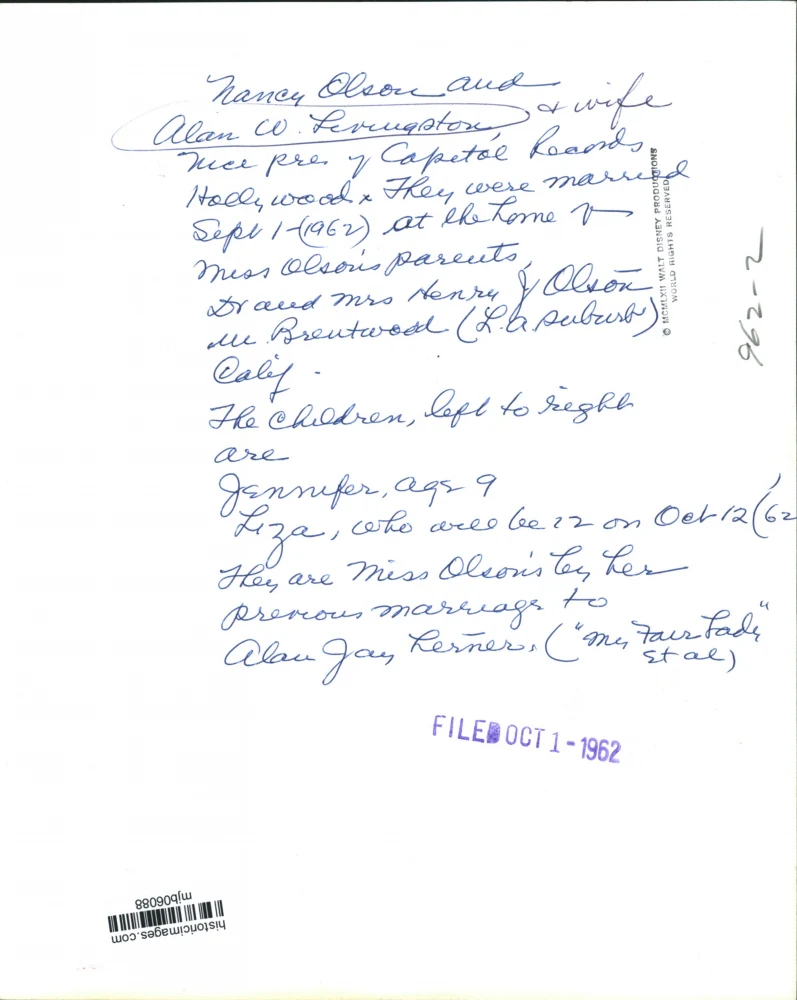 Nancy Olson and
Alan W. Livingston, & wife
Vice pres of Capitol Records
Hollywood x They were married
Sept 1-(1962) at the home of
Miss Olson's parents,
Dr and Mrs Henry J Olson
in Brentwood (L.A suburb)
Calif -
The children, left to right
are
Jennifer, age 9
Liza, who will be 12 on Oct 12 (62
They are Miss Olson's by her
previous marriage to
Alan Jay Lerner. ("My Fair Lady"
et al)
© MCMLXII WALT DISNEY PRODUCTIONS
WORLD RIGHTS RESERVED
962-2
FILED OCT 1-1962
mjb06088
historicimages.com